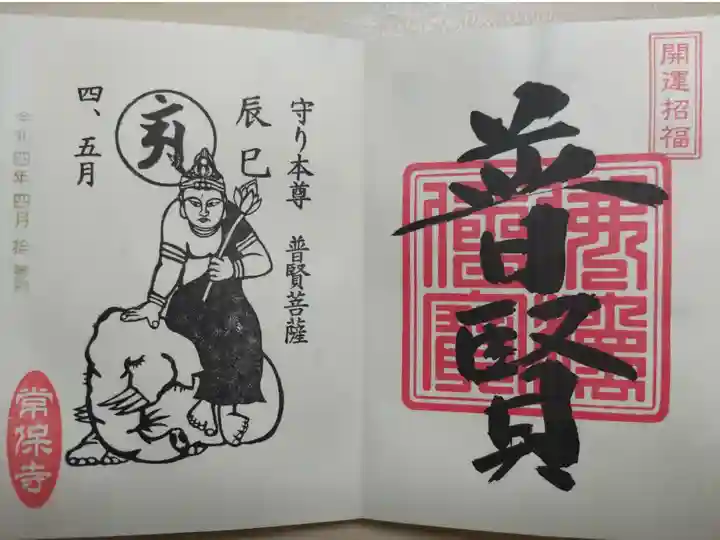 開運招福
普賢
佛法僧寳
守り本尊 普賢菩薩
辰巳
四、五月
令和四年四月 拾
常保寺